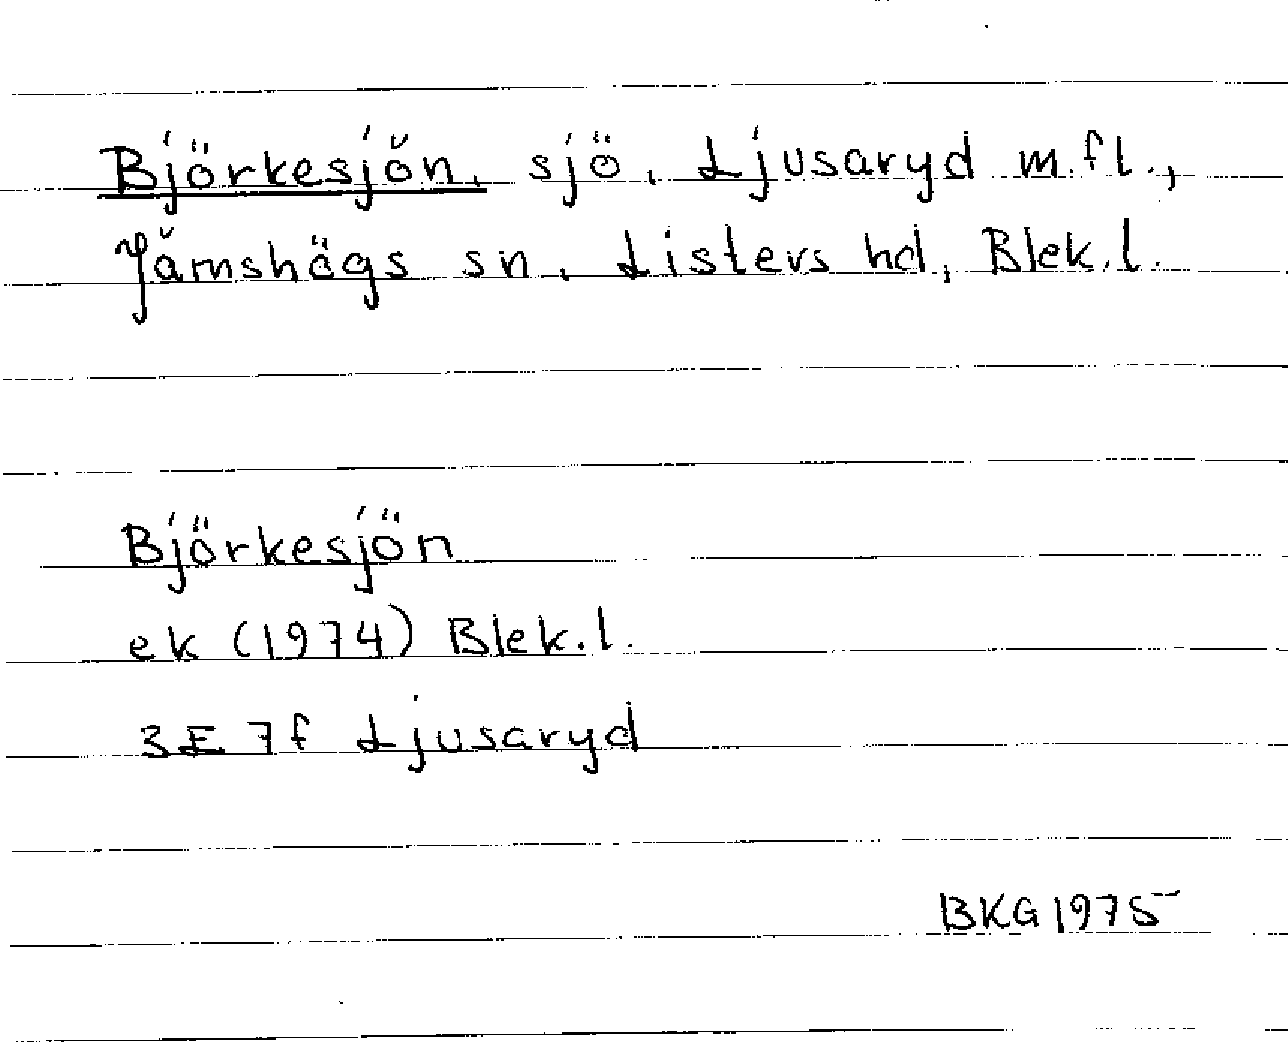 Björkesjön, sjö, Ljusaryd m.fl.,
Jämshögs sn, Listers hd, Blek.l.
Björkesjön
ek (1974) Blek.l.
3E 7f Ljusaryd
BKG 1975